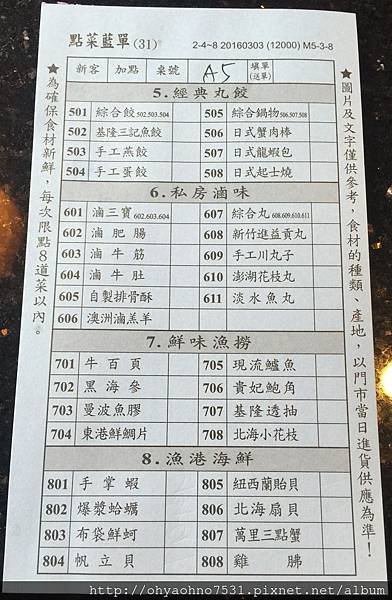 點菜藍單(31) 2-4~8 20160303 (12000) M5-3-8
新客 加點 桌號 A5 填單(送單)
★為確保食材新鮮，每次限點8道菜以內。
5.經典丸餃
501 綜合餃502.503.504 505 綜合鍋物506.507.508
502 基隆三記魚餃 506 日式蟹肉棒
503 手工燕餃 507 日式龍蝦包
504 手工蛋餃 508 日式起士燒
6.私房滷味
601 滷三寶602.603.604 607 綜合丸608.609.610.611
602 滷肥腸 608 新竹進益貢丸
603 滷牛筋 609 手工川丸子
604 滷牛肚 610 澎湖花枝丸
605 自製排骨酥 611 淡水魚丸
606 澳洲滷羔羊
7.鮮味漁撈
701 牛百頁 705 現流鱸魚
702 黑海參 706 貴妃鮑角
703 曼波魚膠 707 基隆透抽
704 東港鮮鯛片 708 北海小花枝
8.漁港海鮮
801 手掌蝦 805 紐西蘭貽貝
802 爆漿蛤蠣 806 北海扇貝
803 布袋鮮蚵 807 萬里三點蟹
804 帆立貝 808 雞胇
★圖片及文字僅供參考，食材的種類、產地，以門市當日進貨供應為準！
http://ohyaohno7531.pixnet.net/album